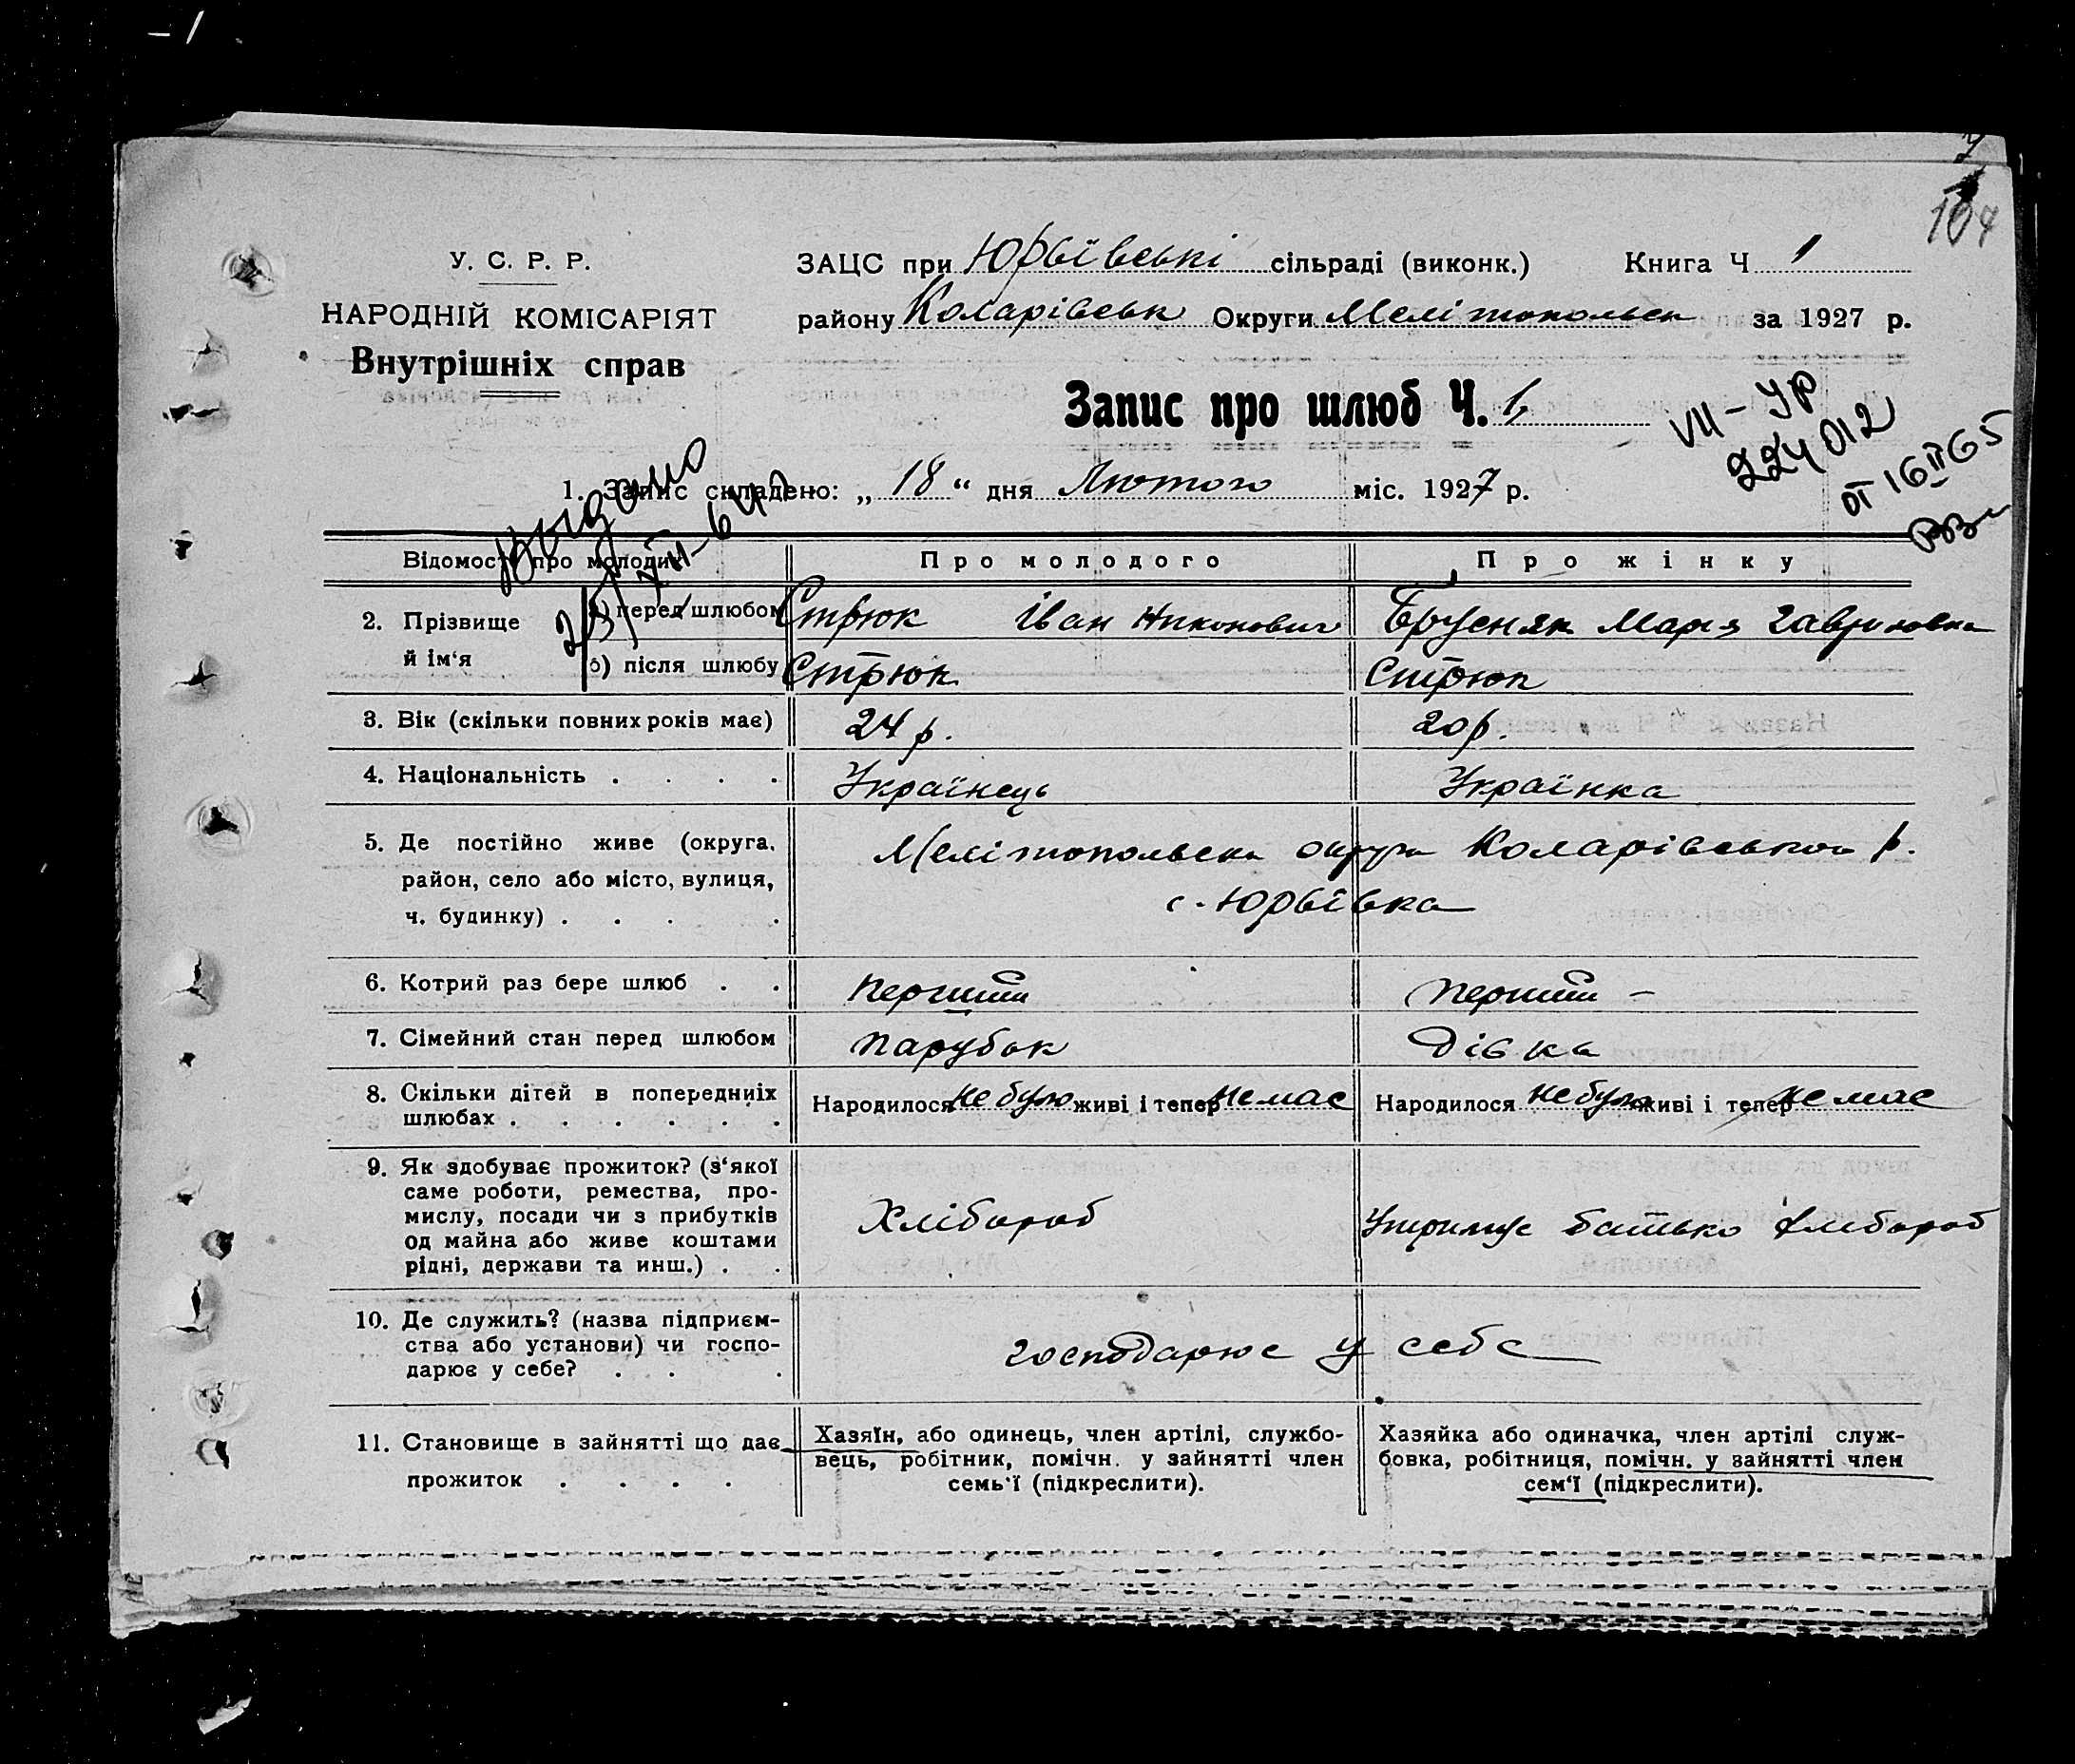 У. С. Р. Р.
НАРОДНІЙ КОМІСАРІЯТ
Внутрішніх справ
ЗАЦС при Юрьївські сільраді (виконк.) Книга Ч 1
району Коларівськ Округи Мелітопольск за 1927 р.
Запис про шлюб Ч. 1
VII – УР
224012
от 16 II 65
Выдано
1. Запис складено: „ 18 “ дня Лютого міс. 1927 р.
Відомості про молодих
Про молодого
Про жінку
2. Прізвище й ім‘я
а) перед шлюбом Стрюк Іван Никонович Брусняк Марія Гавриловна
б) після шлюбу Стрюк Стрюк
3. Вік (скільки повних років має) 24 р. 20 р.
4. Національність . . . . Українець Українка
5. Де постійно живе (округа,
район, село або місто, вулиця,
ч. будинку) . . . .
Мелітопольска округа Коларівського р.
с. Юрьївка
6. Котрий раз бере шлюб . . Перший Перший –
7. Сімейний стан перед шлюбом Парубок Дівка
8. Скільки дітей в попередніх
шлюбах . . . . . .
Народилося не було живі і тепер немає Народилося не було живі і тепер немає
9. Як здобуває прожиток? (з‘якої
саме роботи, ремества, про-
мислу, посади чи з прибутків
од майна або живе коштами
рідні, держави та инш.) . .
Хлібороб Утримує батько хлібороб
10. Де служить? (назва підприєм-
ства або установи) чи госпо-
дарює у себе? . . .
господарює у себе
11. Становище в зайнятті що дає
прожиток . . . .
Хазяїн, або одинець, член артілі, службо-
вець, робітник, помічн. у зайнятті член
семь‘ї (підкреслити).
Хазяйка або одиначка, член артілі служ-
бовка, робітниця, помічн. у зайнятті член
сем‘ї (підкреслити).